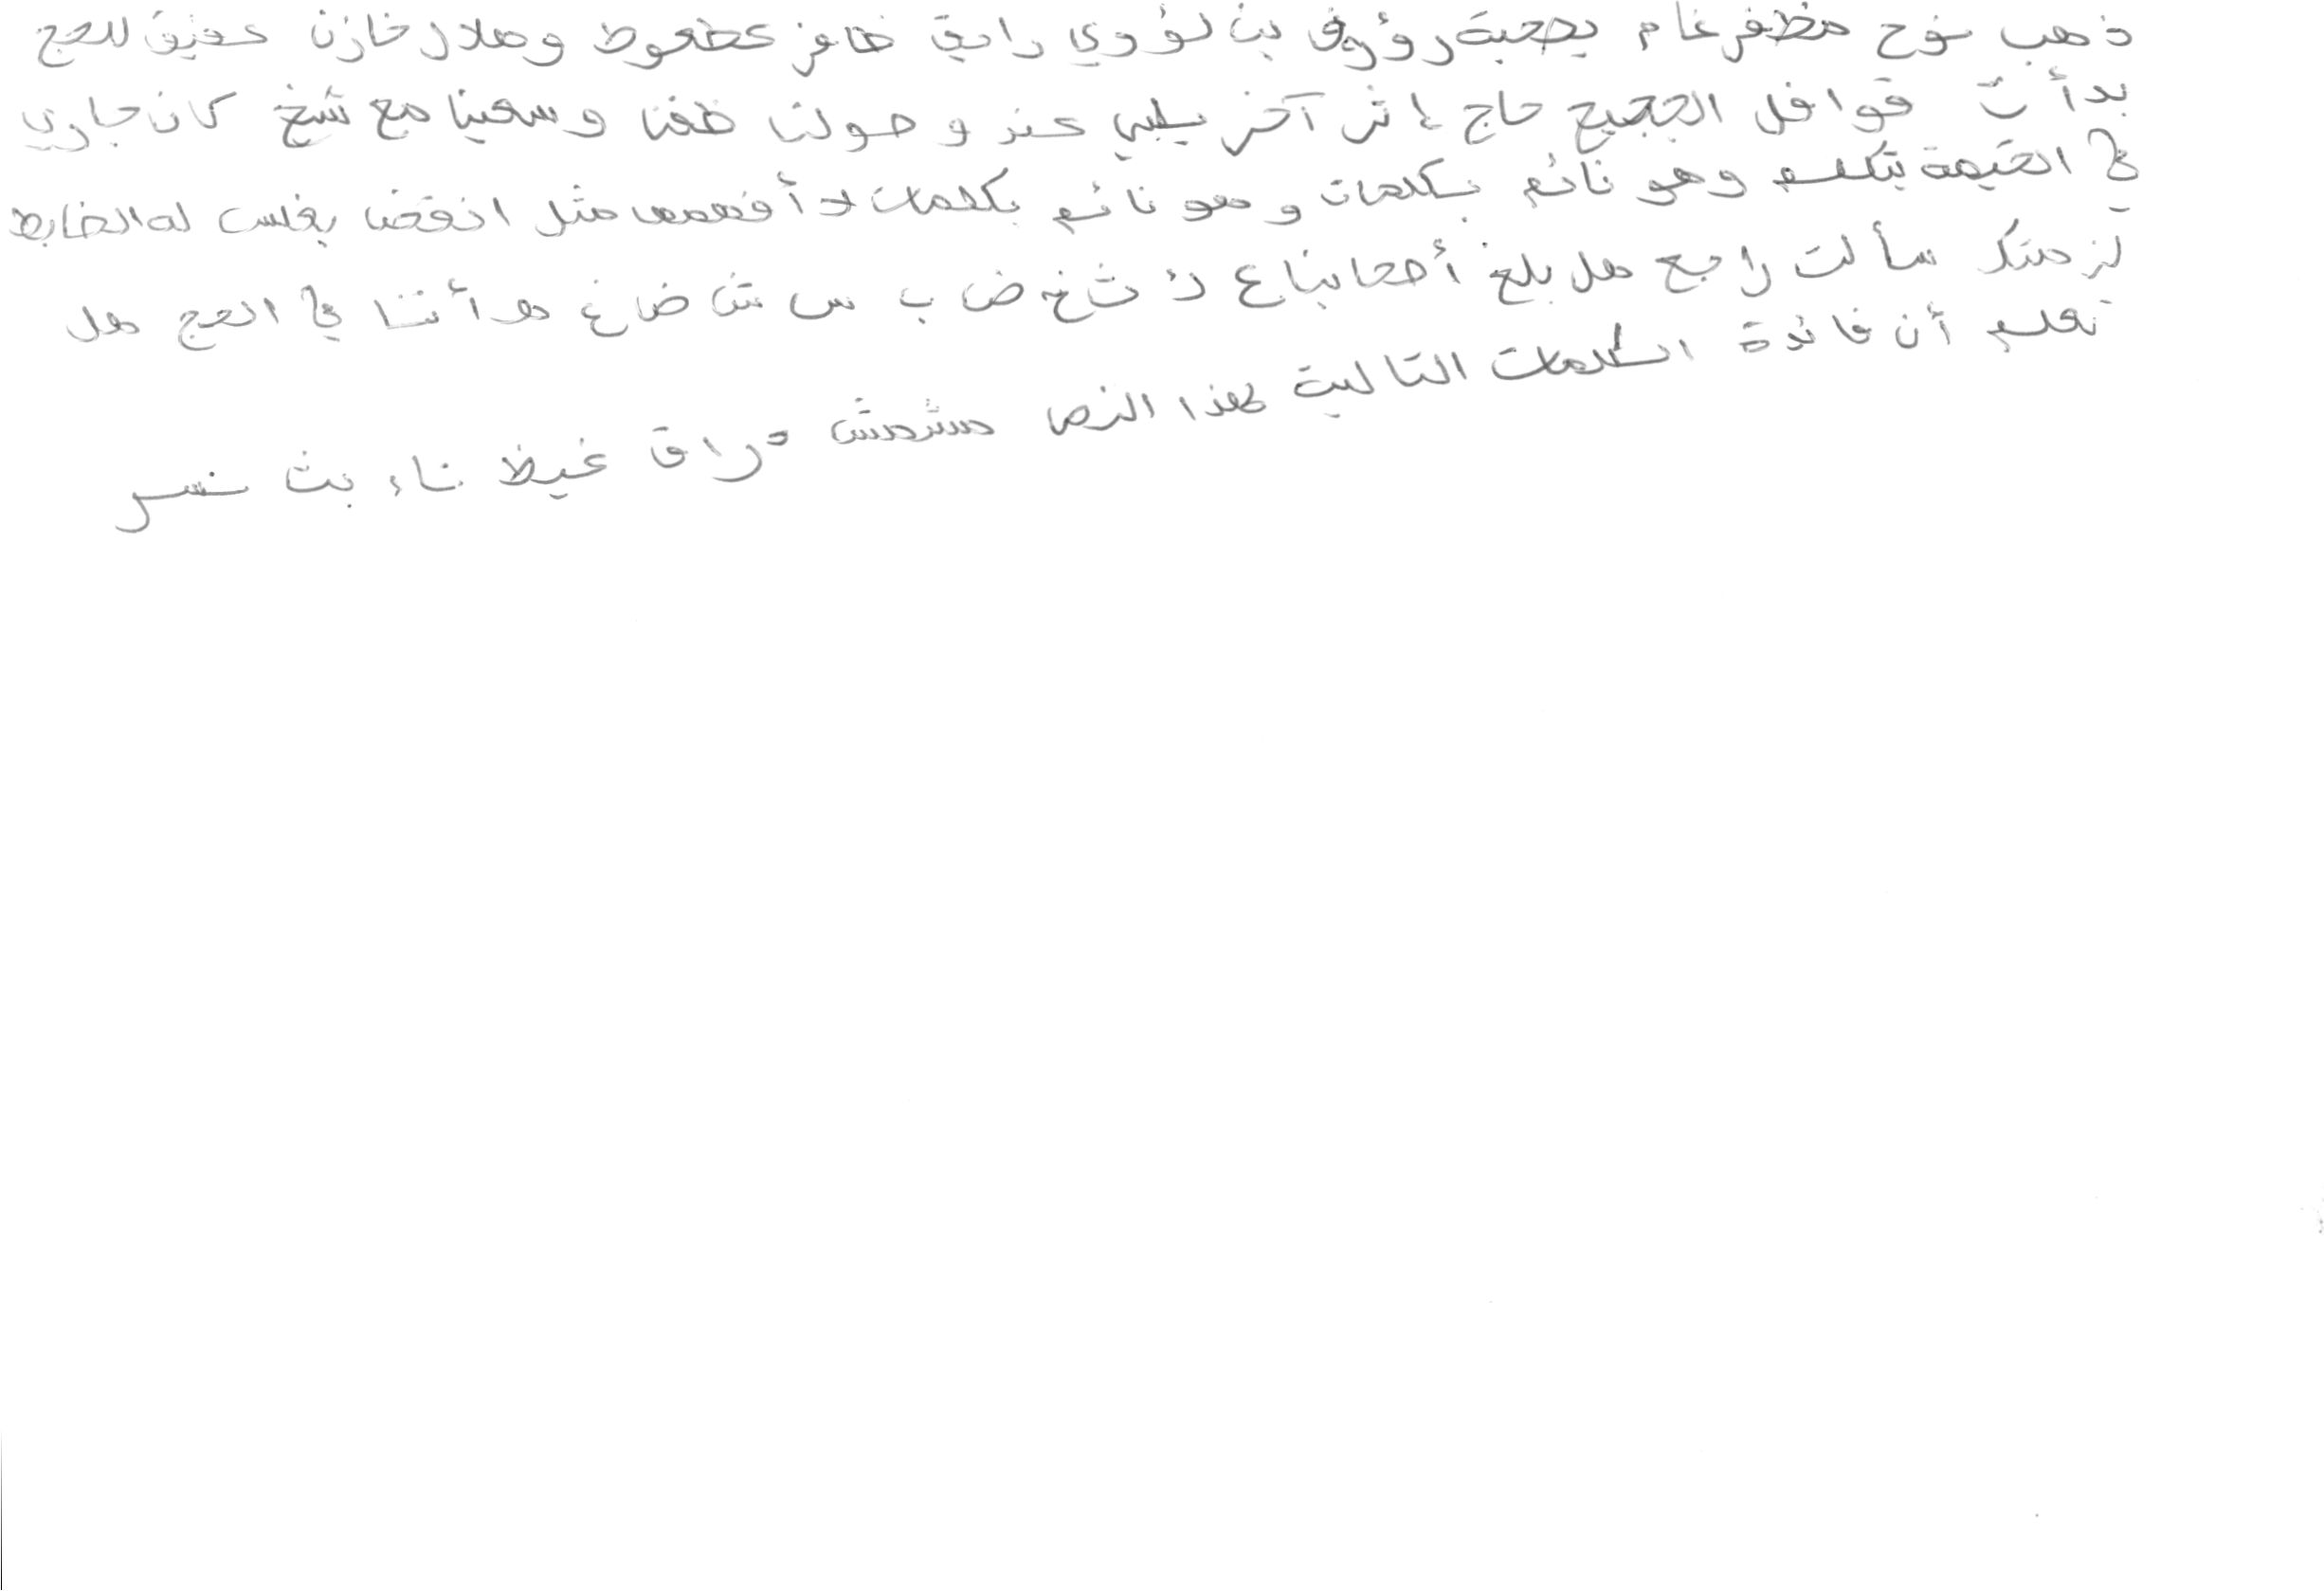 ذهب نوح مظفر غام يصحبة رؤوف بن لؤي رايق ظافر عطعوط وهلال خازن عنيق للحج
بدأت قوافل الحجيج حاج إثر آخر نلبي عند وصولنا طفنا وسعينا مع شيخ كان جاري
في الخيمة يتكلم وهو نائم بكلمات وهو نائم بكلمات لا أفهمها مثل انقض يفلس له الضابط
لن ساألت راجح هل بلغ أصحابنا ع ذ ث خ ض ب س ش ض غ هـ أننا في الحج هل
تعلم أن فائدة الكلمات التالية لهذا النص مشمش قراق غيظ ناء بث نسر